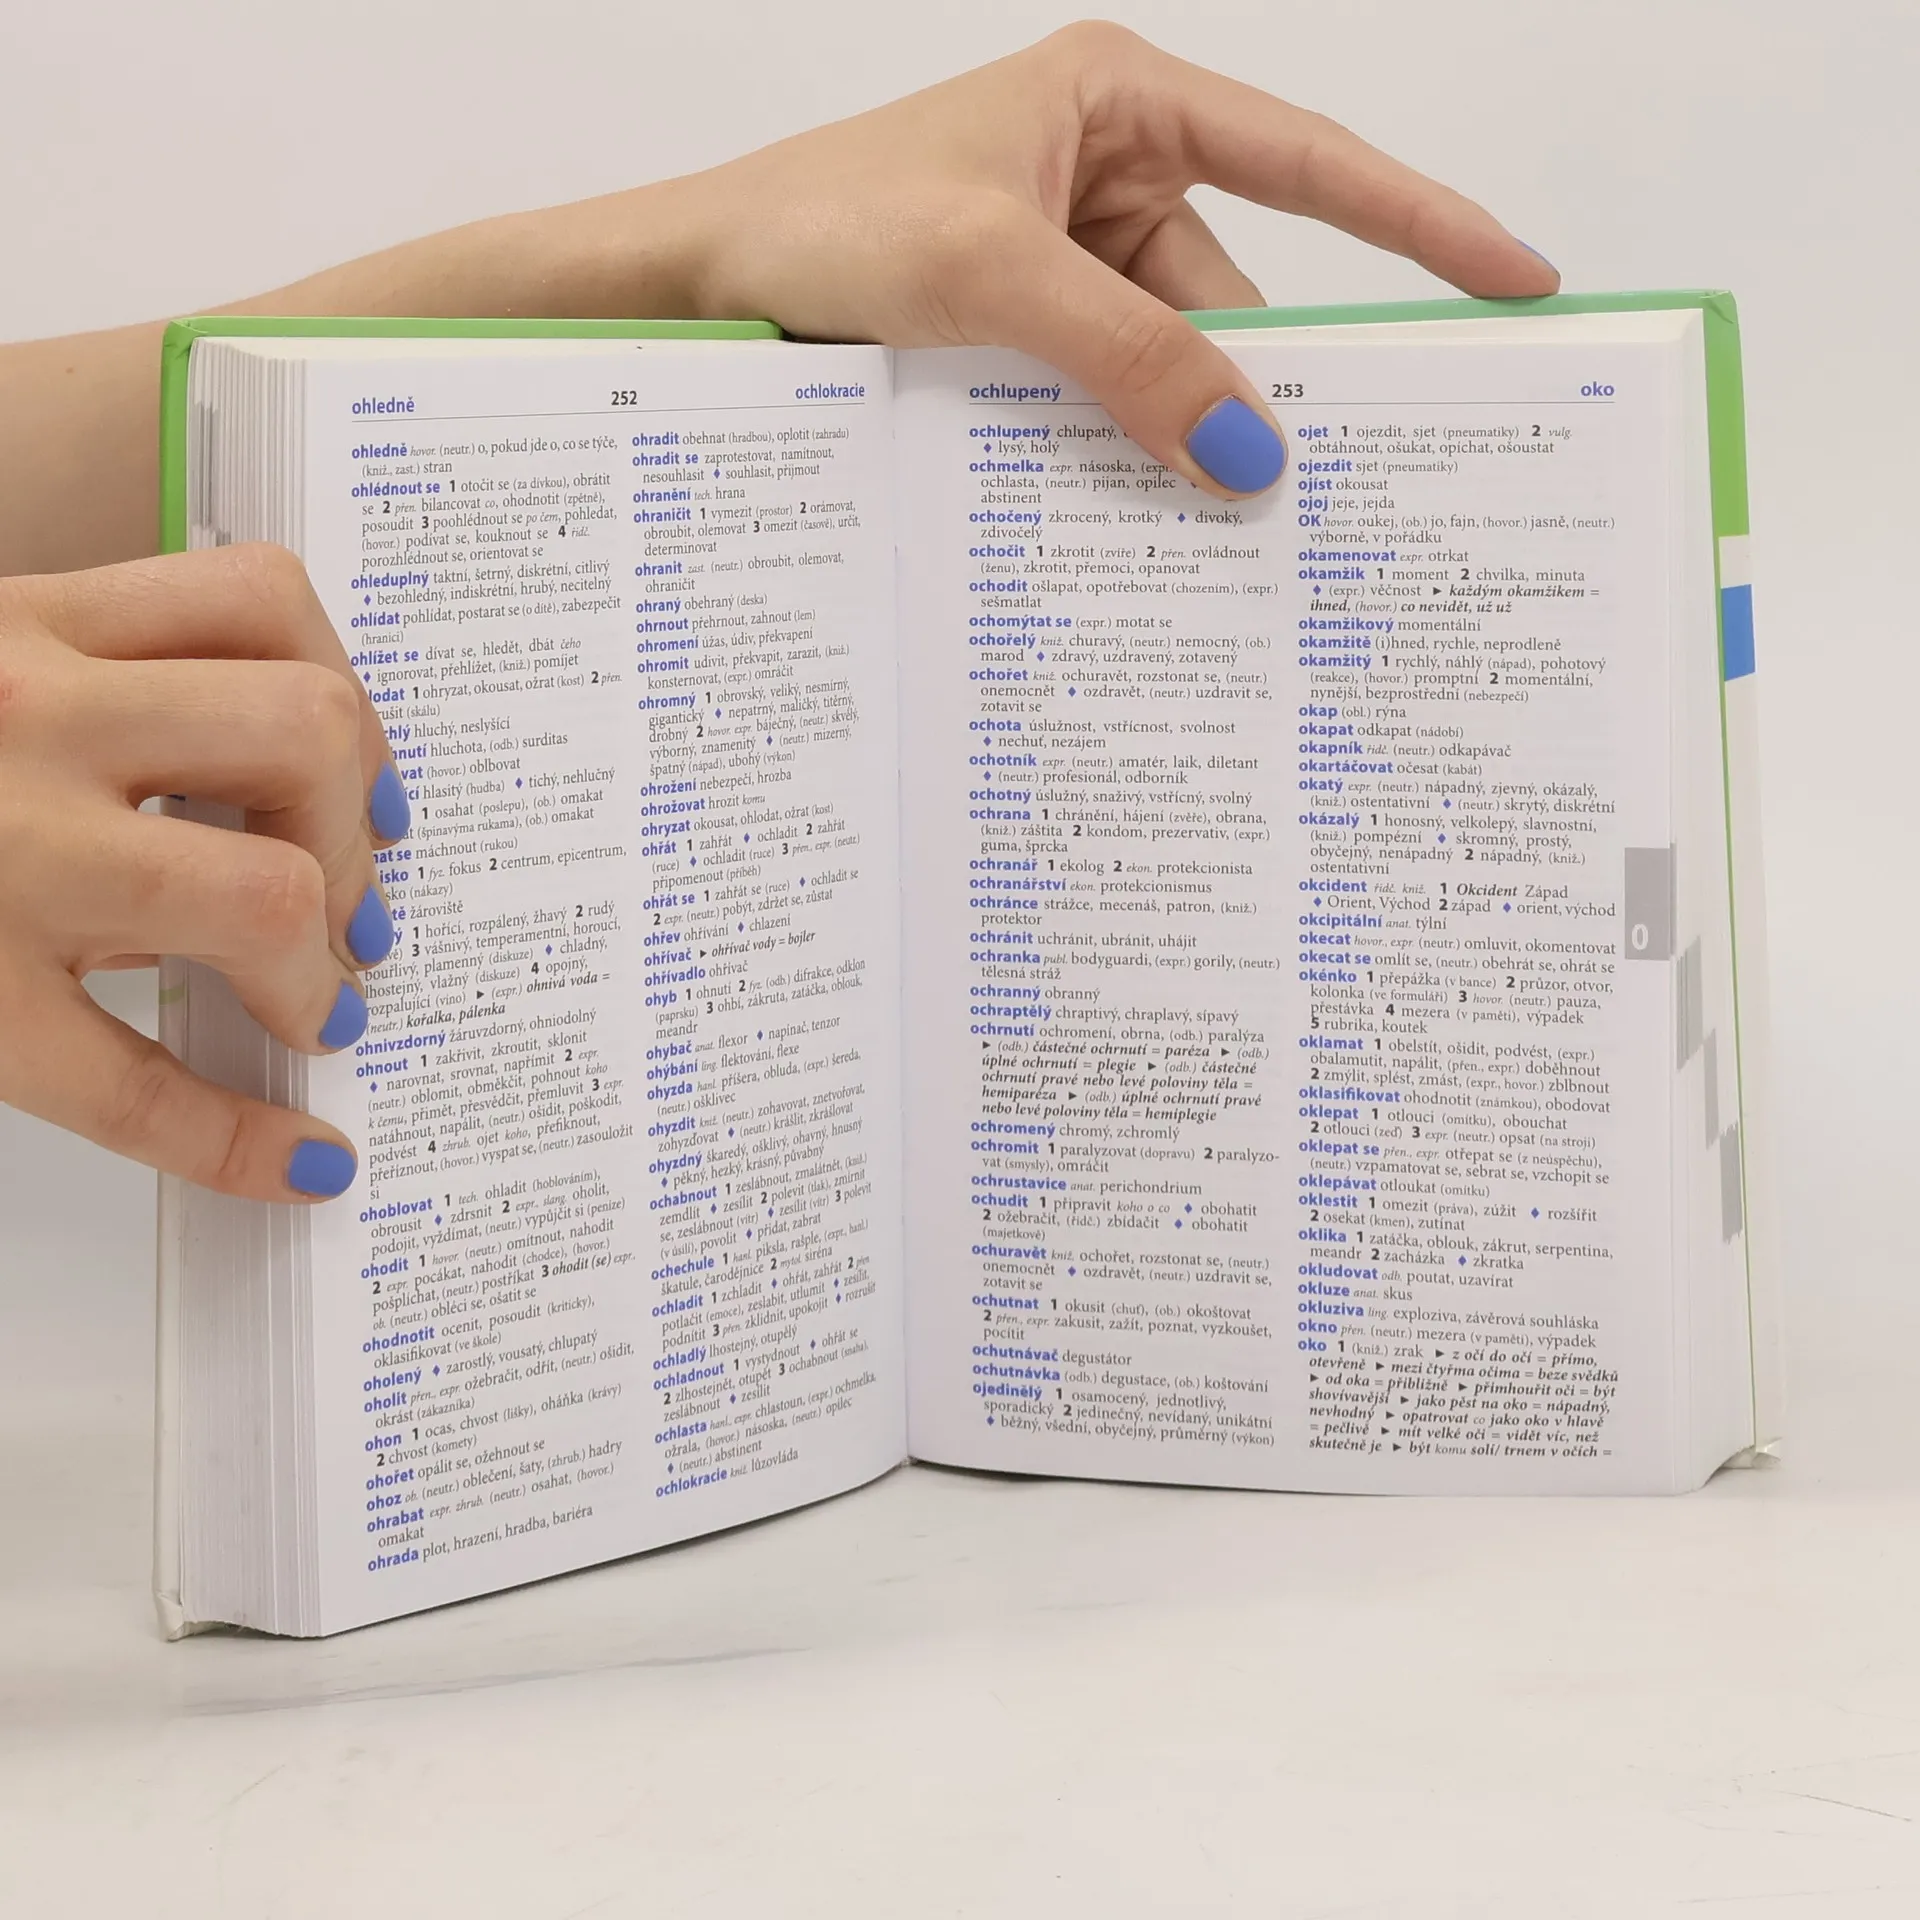 ohledně 252 ochlokracie
ohledně hovor. (neutr.) o, pokud jde o, co se týče,
(kniž., zast.) stran
ohlédnout se 1 otočit se (za dívkou), obrátit
se 2 přen. bilancovat co, ohodnotit (zpětně),
posoudit 3 poohlédnout se po čem, pohledat,
(hovor.) podívat se, kouknout se 4 řidč.
porozhlédnout se, orientovat se
ohleduplný taktní, šetrný, diskrétní, citlivý
♦ bezohledný, indiskrétní, hrubý, necitelný
ohlídat pohlídat, postarat se (o dítě), zabezpečit
(hranici)
ohlížet se dívat se, hledět, dbát čeho
♦ ignorovat, přehlížet, (kniž.) pomíjet
lodat 1 ohryzat, okousat, ožrat (kost) 2 přen.
rušit (skálu)
chlý hluchý, neslyšící
hnutí hluchota, (odb.) surditas
vat (hovor.) oblbovat
cí hlasitý (hudba) ♦ tichý, nehlučný
1 osahat (poslepu), (ob.) omakat
at (špinavýma rukama), (ob.) omakat
at se máchnout (rukou)
isko 1 fyz. fokus 2 centrum, epicentrum,
sko (nákazy)
tě žároviště
ý 1 hořící, rozpálený, žhavý 2 rudý
vě) 3 vášnivý, temperamentní, horoucí,
bouřlivý, plamenný (diskuze) ♦ chladný,
lhostejný, vlažný (diskuze) 4 opojný,
rozpalující (víno) ► (expr.) ohnivá voda =
(neutr.) kořalka, pálenka
ohnivzdorný žáruvzdorný, ohniodolný
ohnout 1 zakřivit, zkroutit, sklonit
♦ narovnat, srovnat, napřímit 2 expr.
(neutr.) oblomit, obměkčit, pohnout koho
k čemu, přimět, přesvědčit, přemluvit 3 expr.
natáhnout, napálit, (neutr.) ošidit, poškodit,
podvést 4 zhrub. ojet koho, přefiknout,
přeříznout, (hovor.) vyspat se, (neutr.) zasouložit
si
ohoblovat 1 tech. ohladit (hoblováním),
obrousit ♦ zdrsnit 2 expr., slang. oholit,
podojit, vyždímat, (neutr.) vypůjčit si (peníze)
ohodit 1 hovor. (neutr.) omítnout, nahodit
2 expr. pocákat, nahodit (chodce), (hovor.)
pošplíchat, (neutr.) postříkat 3 ohodit (se) expr.,
ob. (neutr.) obléci se, ošatit se
ohodnotit ocenit, posoudit (kriticky),
oklasifikovat (ve škole)
oholený ♦ zarostlý, vousatý, chlupatý
oholit přen., expr. ožebračit, odřít, (neutr.) ošidit,
okrást (zákazníka)
ohon 1 ocas, chvost (lišky), oháňka (krávy)
2 chvost (komety)
ohořet opálit se, ožehnout se
ohoz ob. (neutr.) oblečení, šaty, (zhrub.) hadry
ohrabat expr. zhrub. (neutr.) osahat, (hovor.)
omakat
ohrada plot, hrazení, hradba, bariéra
ohradit obehnat (hradbou), oplotit (zahradu)
ohradit se zaprotestovat, namítnout,
nesouhlasit ♦ souhlasit, přijmout
ohranění tech. hrana
ohraničit 1 vymezit (prostor) 2 orámovat,
obroubit, olemovat 3 omezit (časově), určit,
determinovat
ohranit zast. (neutr.) obroubit, olemovat,
ohraničit
ohraný obehraný (deska)
ohrnout přehrnout, zahnout (lem)
ohromení úžas, údiv, překvapení
ohromit udivit, překvapit, zarazit, (kniž.)
konsternovat, (expr.) omráčit
ohromný 1 obrovský, veliký, nesmírný,
gigantický ♦ nepatrný, maličký, titěrný,
drobný 2 hovor. expr. báječný, (neutr.) skvělý,
výborný, znamenitý ♦ (neutr.) mizerný,
špatný (nápad), ubohý (výkon)
ohrožení nebezpečí, hrozba
ohrožovat hrozit komu
ohryzat okousat, ohlodat, ožrat (kost)
ohřát 1 zahřát ♦ ochladit 2 zahřát
(ruce) ♦ ochladit (ruce) 3 přen., expr. (neutr.)
připomenout (příběh)
ohřát se 1 zahřát se (ruce) ♦ ochladit se
2 expr. (neutr.) pobýt, zdržet se, zůstat
ohřev ohřívání ♦ chlazení
ohřívač ► ohřívač vody = bojler
ohřívadlo ohřívač
ohyb 1 ohnutí 2 fyz. (odb.) difrakce, odklon
(paprsku) 3 ohbí, zákruta, zatáčka, oblouk,
meandr
ohybač anat. flexor ♦ napínač, tenzor
ohýbání ling. flektování, flexe
ohyzda hanl. příšera, obluda, (expr.) šereda,
(neutr.) ošklivec
ohyzdit kniž. (neutr.) zohavovat, znetvořovat,
zohyzďovat ♦ (neutr.) krášlit, zkrášlovat
ohyzdný škaredý, ošklivý, ohavný, hnusný
♦ pěkný, hezký, krásný, půvabný
ochabnout 1 zeslábnout, zmalátnět, (kniž.)
zemdlít ♦ zesílit 2 polevit (tlak), zmírnit
se, zeslábnout (vítr) ♦ zesílit (vítr) 3 polevit
(v úsilí), povolit ♦ přidat, zabrat
ochechule 1 hanl. piksla, rašple, (expr., hanl.)
škatule, čarodějnice 2 mytol. siréna
ochladit 1 zchladit ♦ ohřát, zahřát 2 přen.
potlačit (emoce), zeslabit, utlumit ♦ zesílit,
podnítit 3 přen. zklidnit, upokojit ♦ rozrušit
ochladlý lhostejný, otupělý
ochladnout 1 vystydnout ♦ ohřát se
2 zlhostejnět, otupět 3 ochabnout (snaha),
zeslábnout ♦ zesílit
ochlasta hanl., expr. chlastoun, (expr.) ochmelka,
ožrala, (hovor.) násoska, (neutr.) opilec
♦ (neutr.) abstinent
ochlokracie kniž. lůzovláda
ochlupený 253 oko
ochlupený chlupatý,
♦ lysý, holý
ochmelka expr. násoska, (expr.
ochlasta, (neutr.) pijan, opilec ♦
abstinent
ochočený zkrocený, krotký ♦ divoký,
zdivočelý
ochočit 1 zkrotit (zvíře) 2 přen. ovládnout
(ženu), zkrotit, přemoci, opanovat
ochodit ošlapat, opotřebovat (chozením), (expr.)
sešmatlat
ochomýtat se (expr.) motat se
ochořelý kniž. churavý, (neutr.) nemocný, (ob.)
marod ♦ zdravý, uzdravený, zotavený
ochořet kniž. ochuravět, rozstonat se, (neutr.)
onemocnět ♦ ozdravět, (neutr.) uzdravit se,
zotavit se
ochota úslužnost, vstřícnost, svolnost
♦ nechuť, nezájem
ochotník expr. (neutr.) amatér, laik, diletant
♦ (neutr.) profesionál, odborník
ochotný úslužný, snaživý, vstřícný, svolný
ochrana 1 chránění, hájení (zvěře), obrana,
(kniž.) záštita 2 kondom, prezervativ, (expr.)
guma, šprcka
ochranář 1 ekolog 2 ekon. protekcionista
ochranářství ekon. protekcionismus
ochránce strážce, mecenáš, patron, (kniž.)
protektor
ochránit uchránit, ubránit, uhájit
ochranka publ. bodyguardi, (expr.) gorily, (neutr.)
tělesná stráž
ochranný obranný
ochraptělý chraptivý, chraplavý, sípavý
ochrnutí ochromení, obrna, (odb.) paralýza
► (odb.) částečné ochrnutí = paréza ► (odb.)
úplné ochrnutí = plegie ► (odb.) částečné
ochrnutí pravé nebo levé poloviny těla =
hemiparéza ► (odb.) úplné ochrnutí pravé
nebo levé poloviny těla = hemiplegie
ochromený chromý, zchromlý
ochromit 1 paralyzovat (dopravu) 2 paralyzo-
vat (smysly), omráčit
ochrustavice anat. perichondrium
ochudit 1 připravit koho o co ♦ obohatit
2 ožebračit, (řidč.) zbídačit ♦ obohatit
(majetkově)
ochuravět kniž. ochořet, rozstonat se, (neutr.)
onemocnět ♦ ozdravět, (neutr.) uzdravit se,
zotavit se
ochutnat 1 okusit (chuť), (ob.) okoštovat
2 přen., expr. zakusit, zažít, poznat, vyzkoušet,
pocítit
ochutnávač degustátor
ochutnávka (odb.) degustace, (ob.) koštování
ojedinělý 1 osamocený, jednotlivý,
sporadický 2 jedinečný, nevídaný, unikátní
♦ běžný, všední, obyčejný, průměrný (výkon)
ojet 1 ojezdit, sjet (pneumatiky) 2 vulg.
obtáhnout, ošukat, opíchat, ošoustat
ojezdit sjet (pneumatiky)
ojíst okousat
ojoj jeje, jejda
OK hovor. oukej, (ob.) jo, fajn, (hovor.) jasně, (neutr.)
výborně, v pořádku
okamenovat expr. otrkat
okamžik 1 moment 2 chvilka, minuta
♦ (expr.) věčnost ► každým okamžikem =
ihned, (hovor.) co nevidět, už už
okamžikový momentální
okamžitě (i)hned, rychle, neprodleně
okamžitý 1 rychlý, náhlý (nápad), pohotový
(reakce), (hovor.) promptní 2 momentální,
nynější, bezprostřední (nebezpečí)
okap (obl.) rýna
okapat odkapat (nádobí)
okapník řidč. (neutr.) odkapávač
okartáčovat očesat (kabát)
okatý expr. (neutr.) nápadný, zjevný, okázalý,
(kniž.) ostentativní ♦ (neutr.) skrytý, diskrétní
okázalý 1 honosný, velkolepý, slavnostní,
(kniž.) pompézní ♦ skromný, prostý,
obyčejný, nenápadný 2 nápadný, (kniž.)
ostentativní
okcident řidč. kniž. 1 Okcident Západ
♦ Orient, Východ 2 západ ♦ orient, východ
okcipitální anat. týlní
okecat hovor., expr. (neutr.) omluvit, okomentovat
okecat se omlít se, (neutr.) obehrát se, ohrát se
okénko 1 přepážka (v bance) 2 průzor, otvor,
kolonka (ve formuláři) 3 hovor. (neutr.) pauza,
přestávka 4 mezera (v paměti), výpadek
5 rubrika, koutek
oklamat 1 obelstít, ošidit, podvést, (expr.)
obalamutit, napálit, (přen., expr.) doběhnout
2 zmýlit, splést, zmást, (expr., hovor.) zblbnout
oklasifikovat ohodnotit (známkou), obodovat
oklepat 1 otlouci (omítku), obouchat
2 otlouci (zeď) 3 expr. (neutr.) opsat (na stroji)
oklepat se přen., expr. otřepat se (z neúspěchu),
(neutr.) vzpamatovat se, sebrat se, vzchopit se
oklepávat otloukat (omítku)
oklestit 1 omezit (práva), zúžit ♦ rozšířit
2 osekat (kmen), zutínat
oklika 1 zatáčka, oblouk, zákrut, serpentina,
meandr 2 zacházka ♦ zkratka
okludovat odb. poutat, uzavírat
okluze anat. skus
okluziva ling. exploziva, závěrová souhláska
okno přen. (neutr.) mezera (v paměti), výpadek
oko 1 (kniž.) zrak ► z očí do očí = přímo,
otevřeně ► mezi čtyřma očima = beze svědků
► od oka = přibližně ► přimhouřit oči = být
shovívavější ► jako pěst na oko = nápadný,
nevhodný ► opatrovat co jako oko v hlavě
= pečlivě ► mít velké oči = vidět víc, než
skutečně je ► být komu solí/ trnem v očích =
O